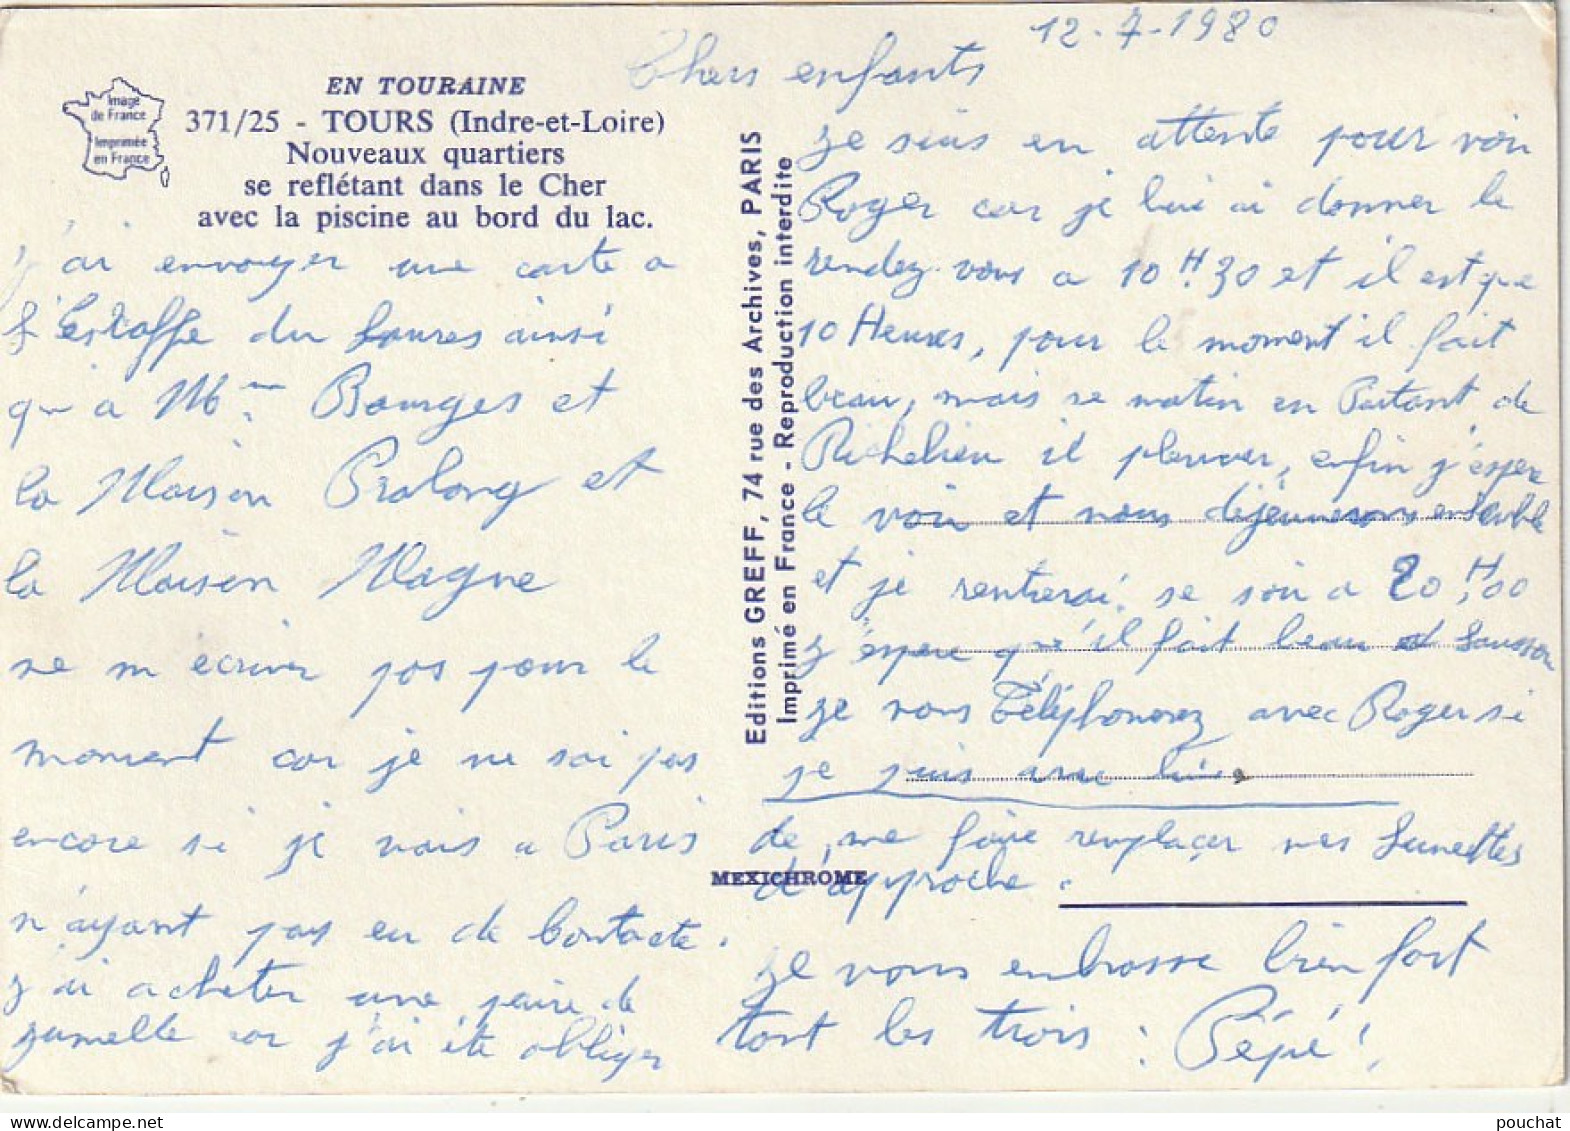 12-7-1980
Chers enfants
EN TOURAINE
371/25 - TOURS (Indre-et-Loire)
Nouveaux quartiers
se reflétant dans le Cher
avec la piscine au bord du lac.
Image
de France
Imprimée
en France
Editions GREFF, 74 rue des Archives, PARIS
Imprimé en France - Reproduction interdite
MEXICHROME
je suis en attente pour voir
Roger car je lui ai donner le
rendez-vous a 10 H.30 et il est que
10 Heures, pour le moment il fait
beau, mais se matin en Partant de
Richelieu il pleuver, enfin j'espere
le voir et nous déjeunerons ensemble
et je rentrerai se soir a 20 H,00
j'espere qu'il fait beau
je vous Téléphonerez avec Roger si
je suis avec lui.
j'ai envoyer une carte a
l'estaffe du ainsi
qu'a Mme Bourges et
la Maison Pralong et
la Maison Magne
ne m'écriver pas pour le
moment car je ne sai pas
encore si je vais a Paris
n'ayant pas eu de Contacte.
j'ai acheter une paire de
jumelle car j'ai ete obliger
de me faire remplacer mes Lunettes
d'approche.
je vous embrasse bien fort
tout les trois : Pépé !